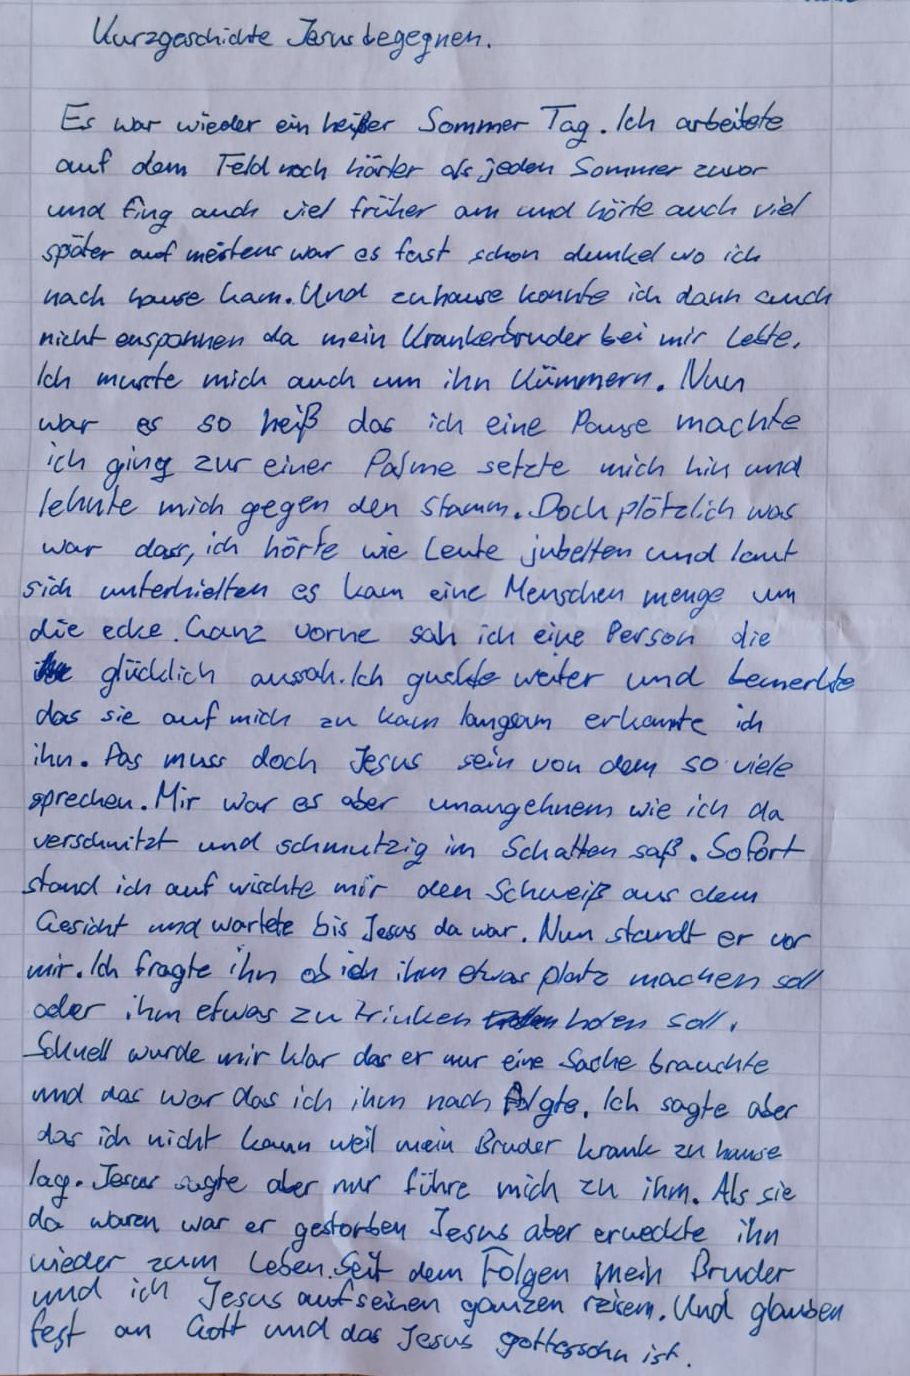 Kurzgeschichte Jesus begegnen.
Es war wieder ein heißer Sommer Tag. Ich arbeitete
auf dem Feld noch härter als jeden Sommer zuvor
und fing auch viel früher an und hörte auch viel
später auf meistens war es fast schon dunkel wo ich
nach hause kam. Und zuhause konnte ich dann auch
nicht enspannen da mein Krankerbruder bei mir lebte.
Ich musste mich auch um ihn Kümmern. Nun
war es so heiß das ich eine Pause machte
ich ging zur einer Palme setzte mich hin und
lehnte mich gegen den Stamm. Doch plötzlich was
war dass, ich hörte wie Leute jubelten und laut
sich unterhielten es kam eine Menschen menge um
die ecke. Ganz vorne sah ich eine Person die
glücklich aussah. Ich guckte weiter und bemerkte
das sie auf mich zu kam langsam erkannte ich
ihn. Das muss doch Jesus sein von dem so viele
sprechen. Mir war es aber unangehnem wie ich da
verschwitzt und schmutzig im Schatten saß. Sofort
stand ich auf wischte mir den Schweiß aus dem
Gesicht und wartete bis Jesus da war. Nun standt er vor
mir. Ich fragte ihn ob ich ihm etwas platz machen soll
oder ihm etwas zu trinken holen soll.
Schnell wurde mir klar das er nur eine Sache brauchte
und das war das ich ihm nach folgte. Ich sagte aber
das ich nicht kann weil mein Bruder krank zu hause
lag. Jesus sagte aber nur führe mich zu ihm. Als sie
da waren war er gestorben Jesus aber erweckte ihn
wieder zum Leben. Seit dem Folgen mein Bruder
und ich Jesus auf seinen ganzen reisen. Und glauben
fest an Gott und das Jesus gottessohn ist.